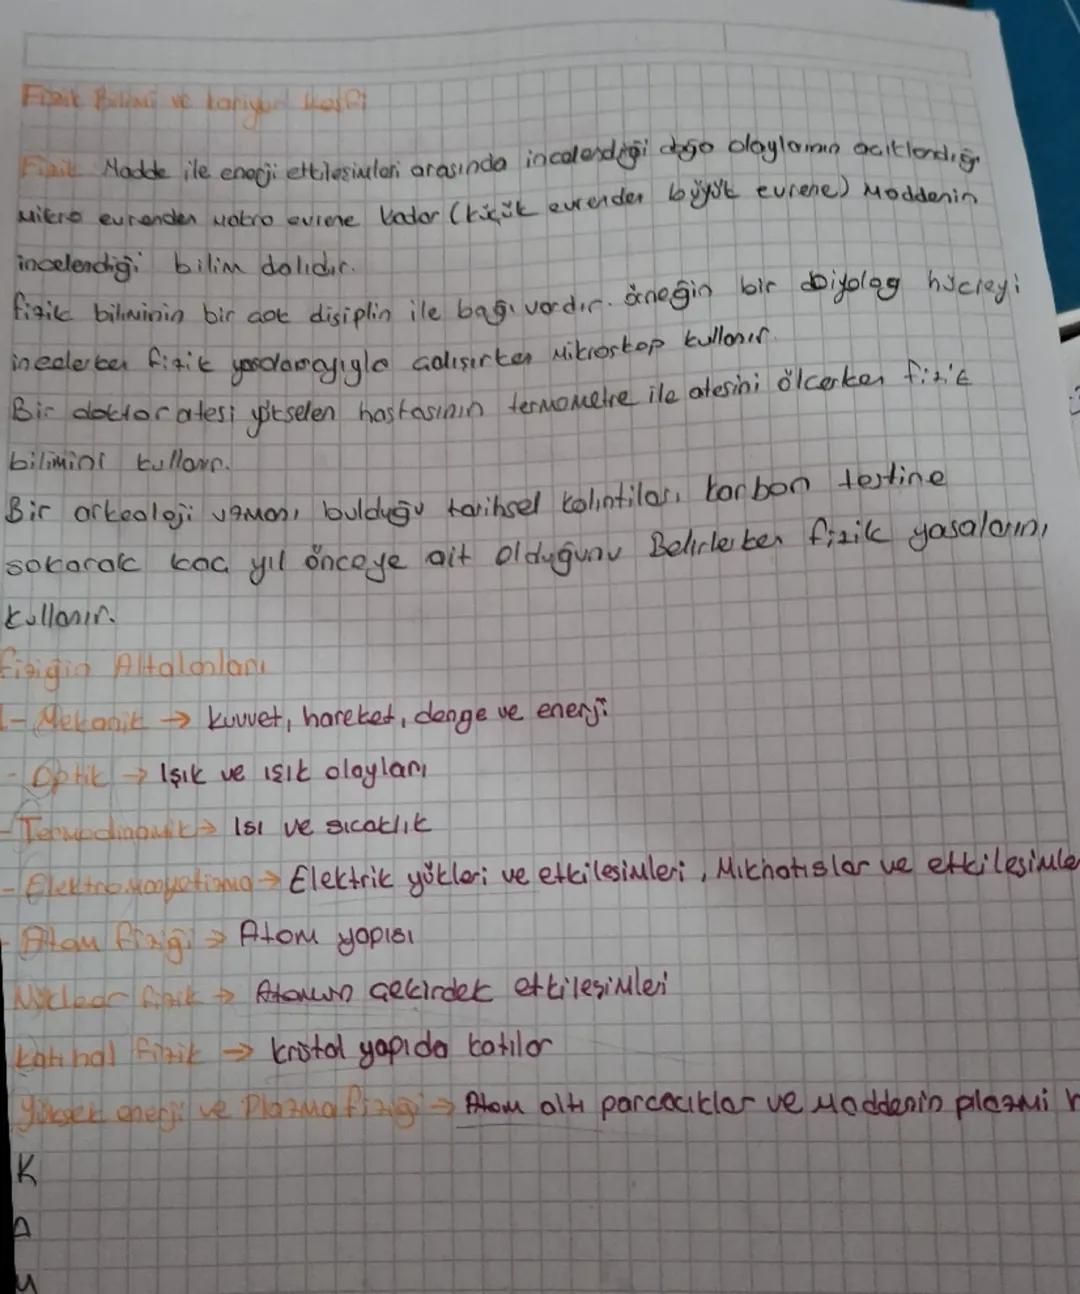 Fizik Bilimi ve kariyer keşfi
Fizik Madde ile enerji etkileşimleri arasında incelendiği doğa olaylarının acıklandığı
mikro evrenden makro evrene kadar (küçük evrenden büyük evrene) Maddenin
incelendiği bilim dalıdır.
fizik biliminin bir cok disiplin ile bağı vardır. örneğin bir biyolog hücreyi
incelerken fizik yasalarıyla calışırken Mikroskop kullanır.
Bir doktor atesi yükselen hastasının termometre ile atesini ölcerken fizik
bilimini kullanır.
Bir arkeoloji uzmanı bulduğu tarihsel kalıntıları karbon testine
sokarak kac yıl önceye ait olduğunu Belirlerken fizik yasalarını
kullanır.
fiziğin Altalanları
1- Mekanik → kuvvet, hareket, denge ve enerji
- Optik → Işık ve ışık olayları
- Termodinamik → Isı ve sıcaklık
- Elektromanyetizma → Elektrik yükleri ve etkilesimleri, Mıknatıslar ve etkilesimle
- Atom fiziği → Atom yapısı
Nükleer fizik → Atomun cekirdek etkileşimleri
katıhal fizik → kristal yapıda katılar
Yüksek enerji ve Plazma fiziği → Atom altı parcacıklar ve Maddenin plazmi h
K
A
M